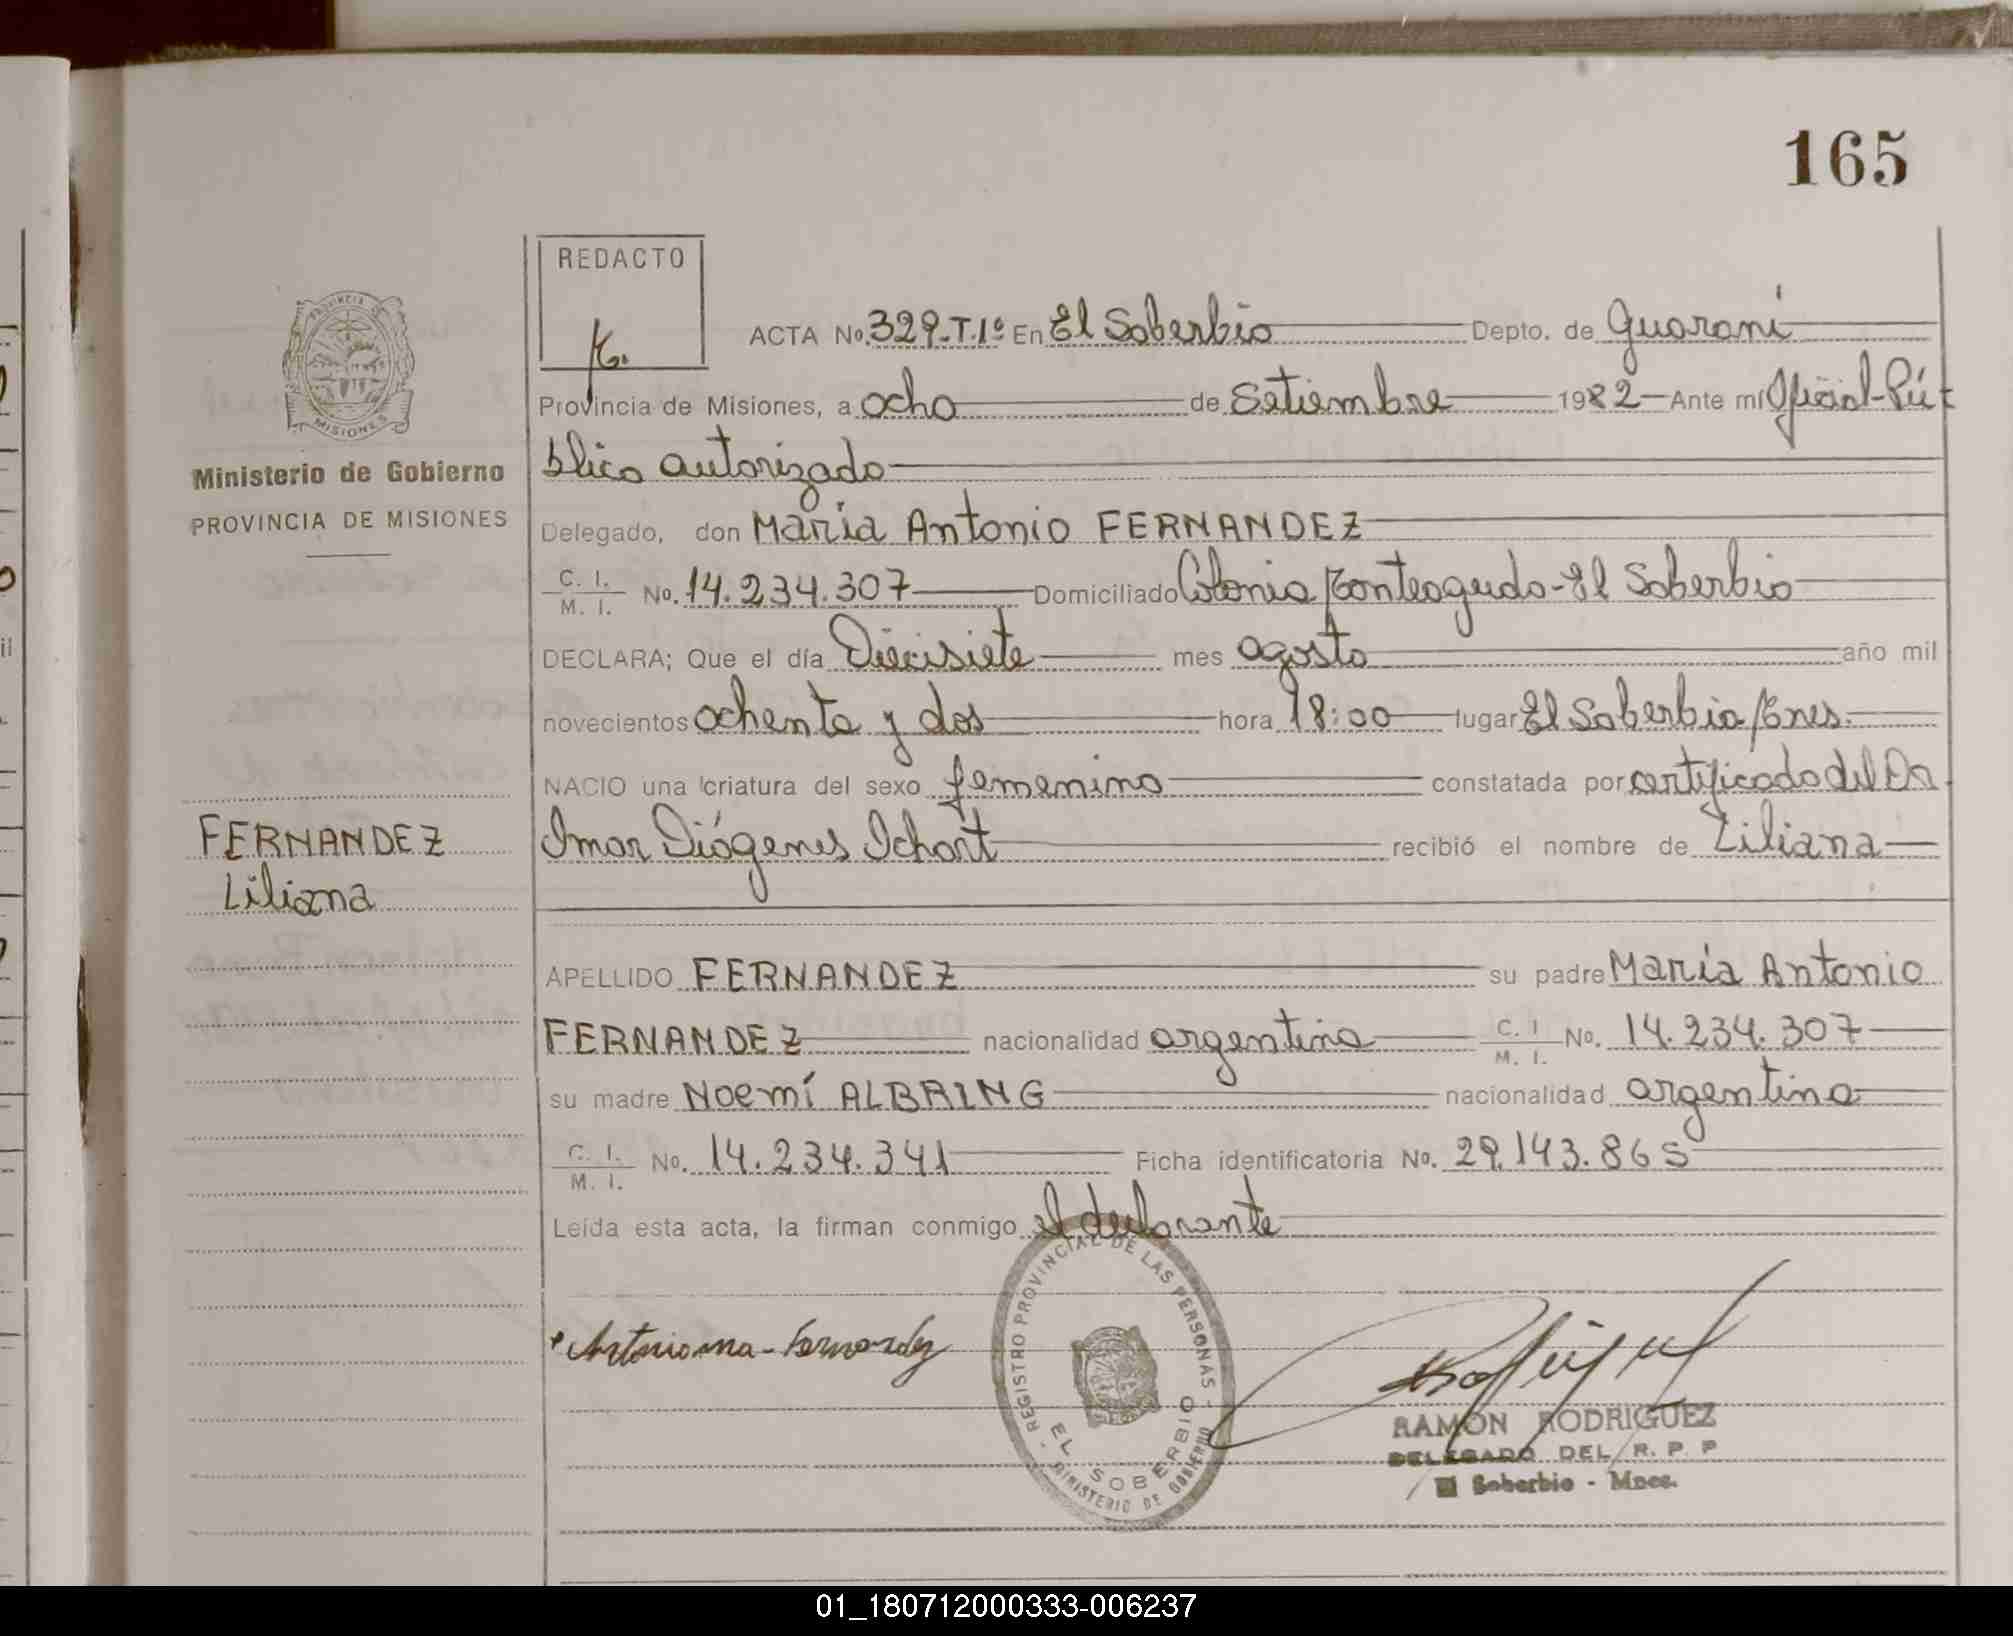 165
REDACTO
K.
PROVINCIA DE
MISIONES
Ministerio de Gobierno
PROVINCIA DE MISIONES
FERNANDEZ
Liliana
ACTA No. 329-T.1º En El Soberbio Depto. de Guaraní
Provincia de Misiones, a ocho de Setiembre 1982 Ante mí Oficial-Pú-
blico autorizado
Delegado, don María Antonio FERNANDEZ
C. I. / M. I. No. 14.234.307 Domiciliado Colonia Monteagudo-El Soberbio
DECLARA; Que el día Diecisiete mes agosto año mil
novecientos ochenta y dos hora 18:00 lugar El Soberbio/Mnes.
NACIO una criatura del sexo femenino constatada por certificado del Dr.
Imar Diógenes Ichart recibió el nombre de Liliana
APELLIDO FERNANDEZ su padre María Antonio
FERNANDEZ nacionalidad argentina C. I. / M. I. No. 14.234.307
su madre Noemí ALBRING nacionalidad argentina
C. I. / M. I. No. 14.234.341 Ficha identificatoria No. 29.143.865
Leída esta acta, la firman conmigo el declarante
Fernandez
REGISTRO PROVINCIAL DE LAS PERSONAS -
EL SOBERBIO
- MINISTERIO DE GOBIERNO
RAMON RODRIGUEZ
DELEGADO DEL R. P. P
El Soberbio - Mnes.
01_180712000333-006237